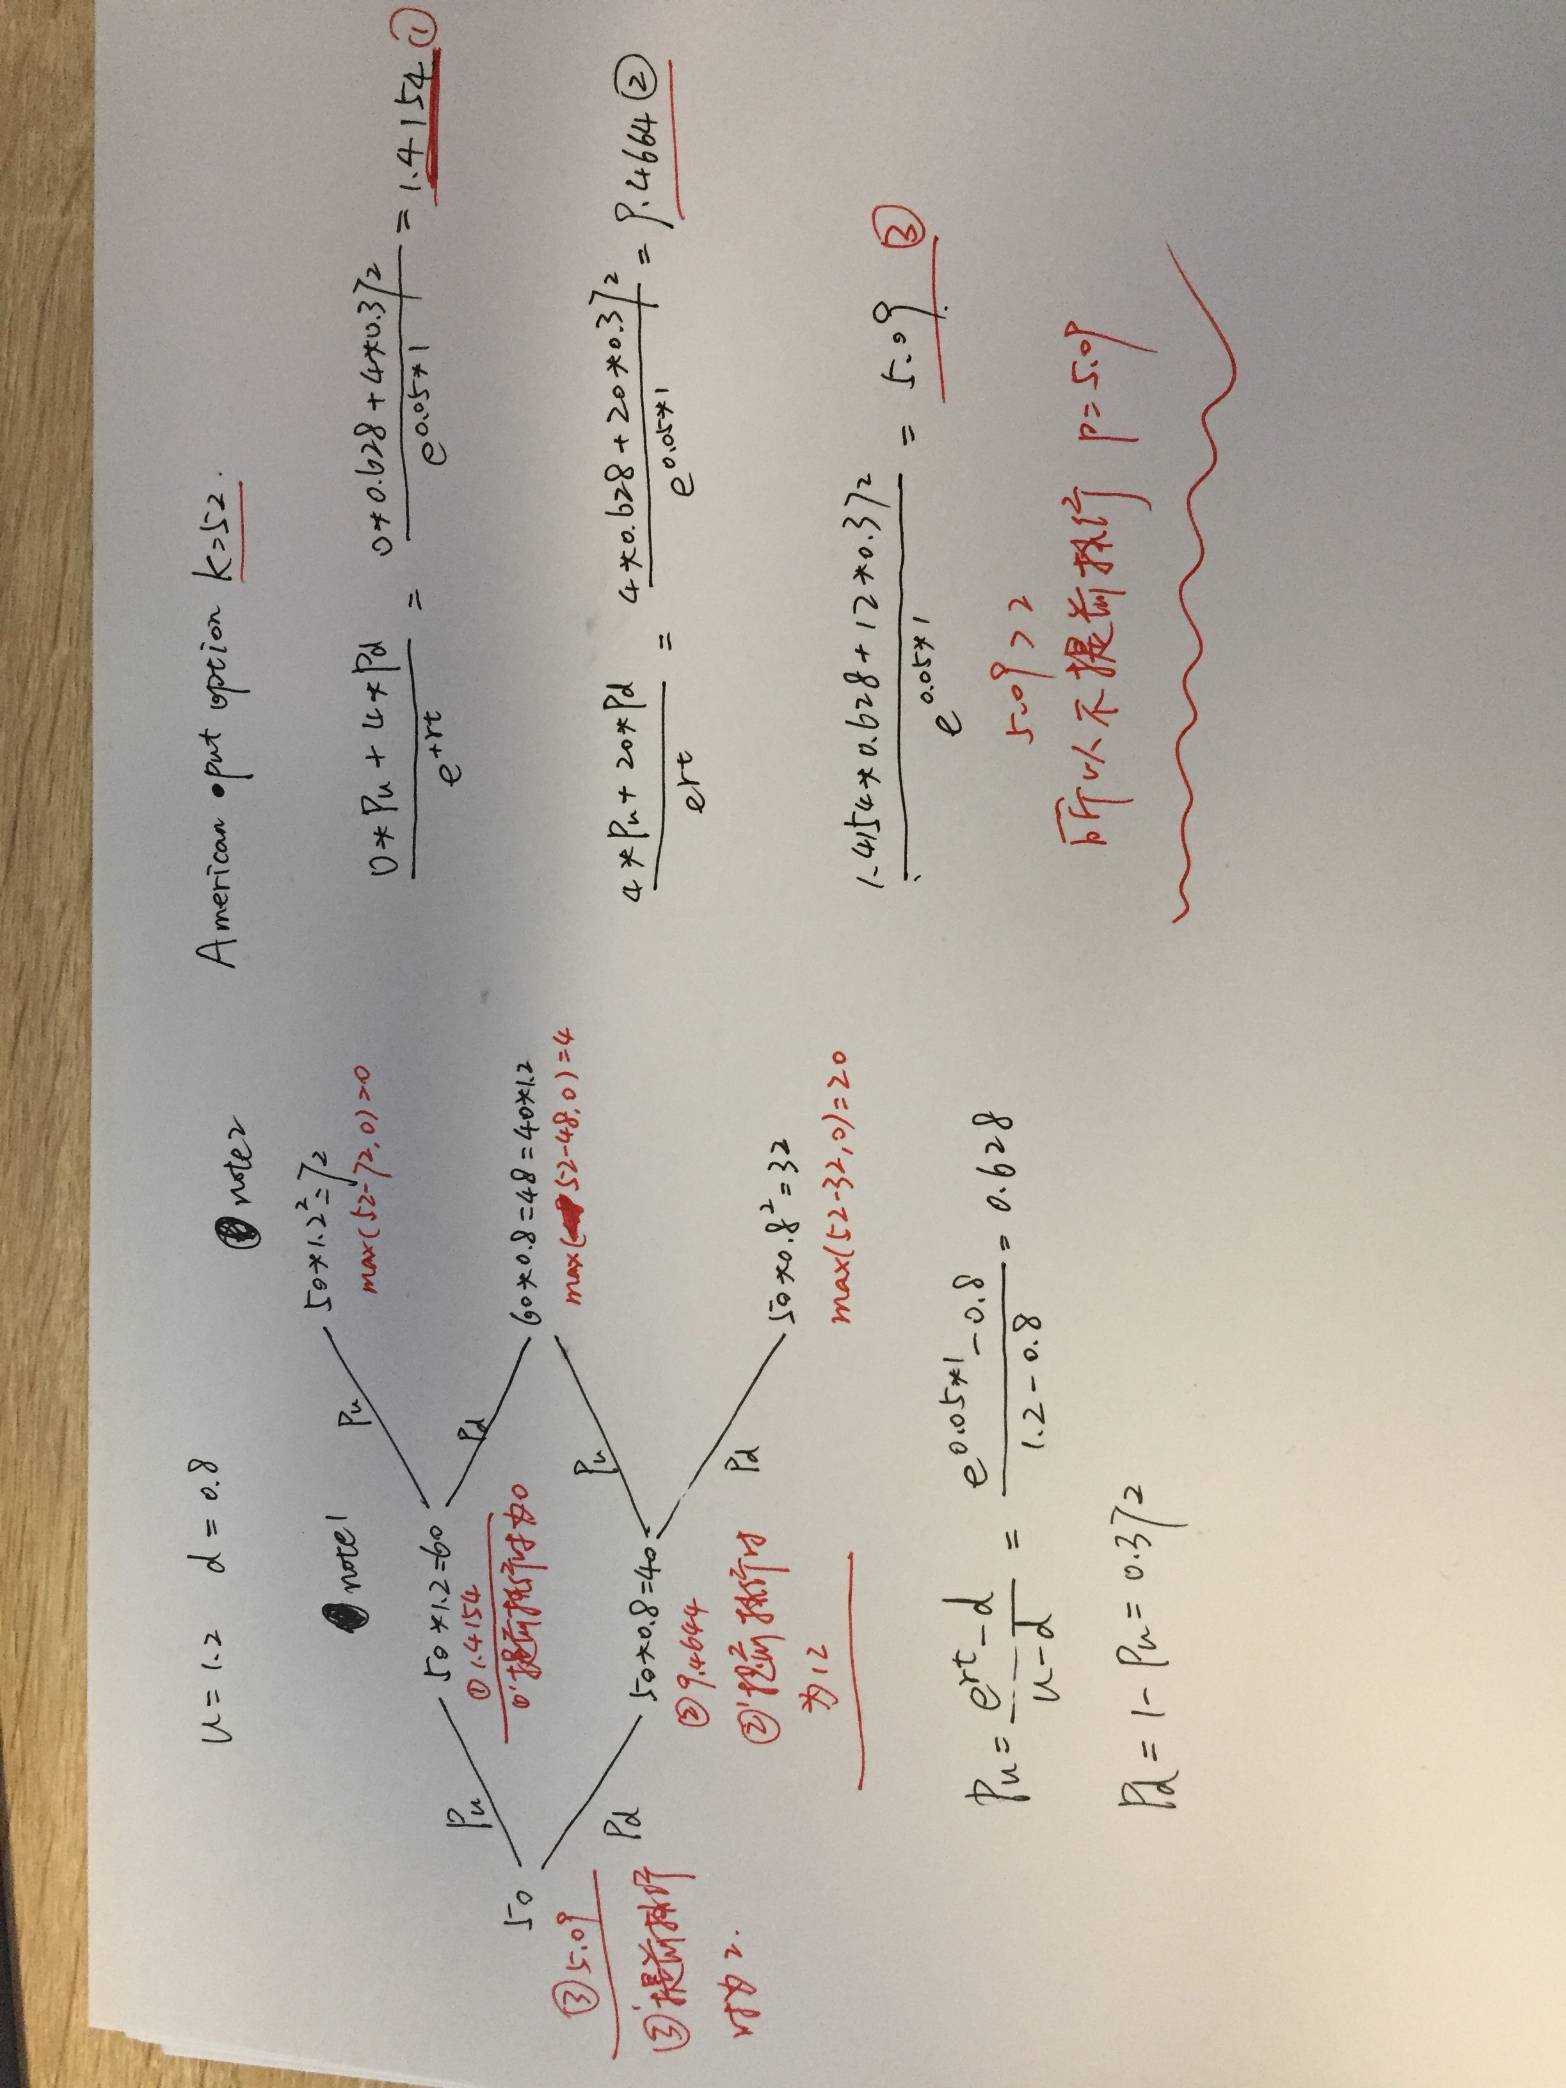 u = 1.2 d = 0.8
note1
note2
50*1.2²=72
max(52-72,0)=0
Pu
Pu
50*1.2=60
①1.4154
①'提前执行时为0
Pd
60*0.8=48=40*1.2
max(52-48,0)=4
50
③5.09
③'提前执行
时为2.
Pd
Pu
50*0.8=40
②9.4644
②'提前执行时
为12
Pd
50*0.8²=32
max(52-32,0)=20
Pu = e^rt - d / u - d = e^0.05*1 - 0.8 / 1.2 - 0.8 = 0.628
Pd = 1 - Pu = 0.372
American put option k=52.
0*Pu + 4*Pd / e^+rt = 0*0.628 + 4*0.372 / e^0.05*1 = 1.4154 ①
4*Pu + 20*Pd / e^rt = 4*0.628 + 20*0.372 / e^0.05*1 = 9.4664 ②
1.4154*0.628 + 12*0.372 / e^0.05*1 = 5.09 ③
5.09 > 2
所以不提前执行 P=5.09